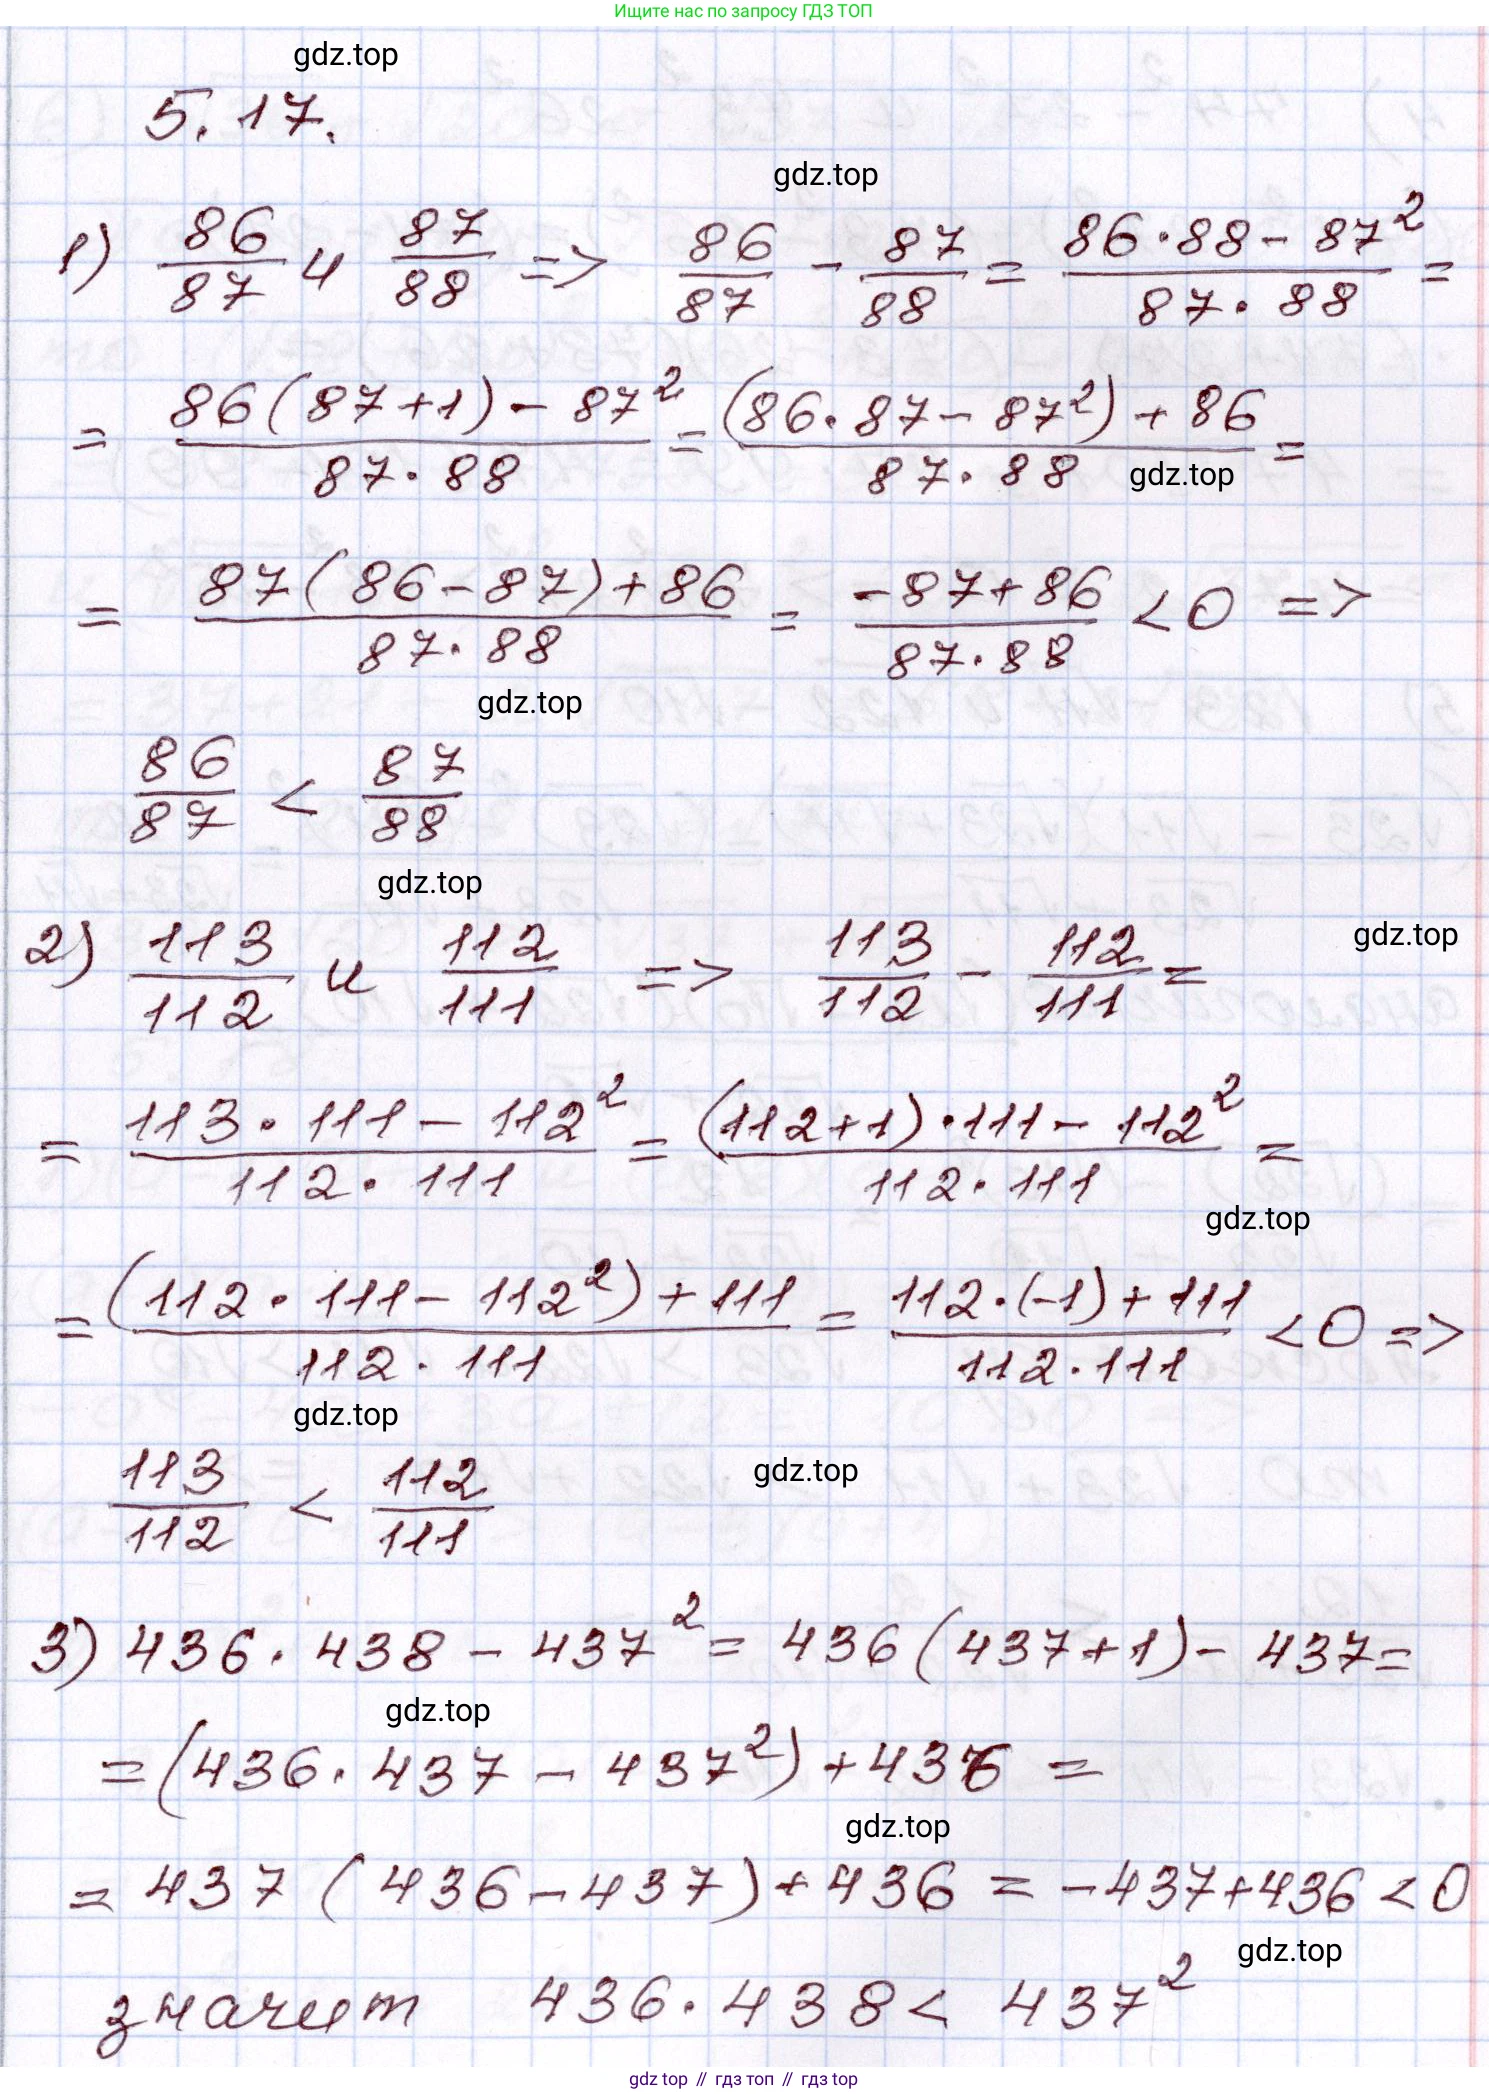 Ищите нас по запросу ГДЗ ТОП
gdz.top
5.17.
gdz.top
1) 86/87 и 87/88 => 86/87 - 87/88 = (86·88 - 87²)/(87·88) =
= (86(87+1) - 87²)/(87·88) = ((86·87 - 87²) + 86)/(87·88) =
gdz.top
= (87(86-87)+86)/(87·88) = (-87+86)/(87·88) < 0 =>
gdz.top
86/87 < 87/88
gdz.top
2) 113/112 и 112/111 => 113/112 - 112/111 =
gdz.top
= (113·111 - 112²)/(112·111) = ((112+1)·111 - 112²)/(112·111) =
gdz.top
= ((112·111 - 112²) + 111)/(112·111) = (112·(-1) + 111)/(112·111) < 0 =>
gdz.top
113/112 < 112/111
gdz.top
3) 436·438 - 437² = 436(437+1) - 437 =
gdz.top
= (436·437 - 437²) + 436 =
gdz.top
= 437(436-437) + 436 = -437+436 < 0
gdz.top
значит 436·438 < 437²
gdz top // гдз топ // гдз top